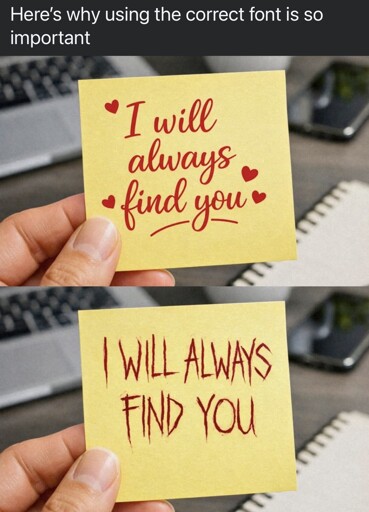 Here's why using the correct font is so
important
I will
always
find you
I WILL ALWAYS
FIND YOU